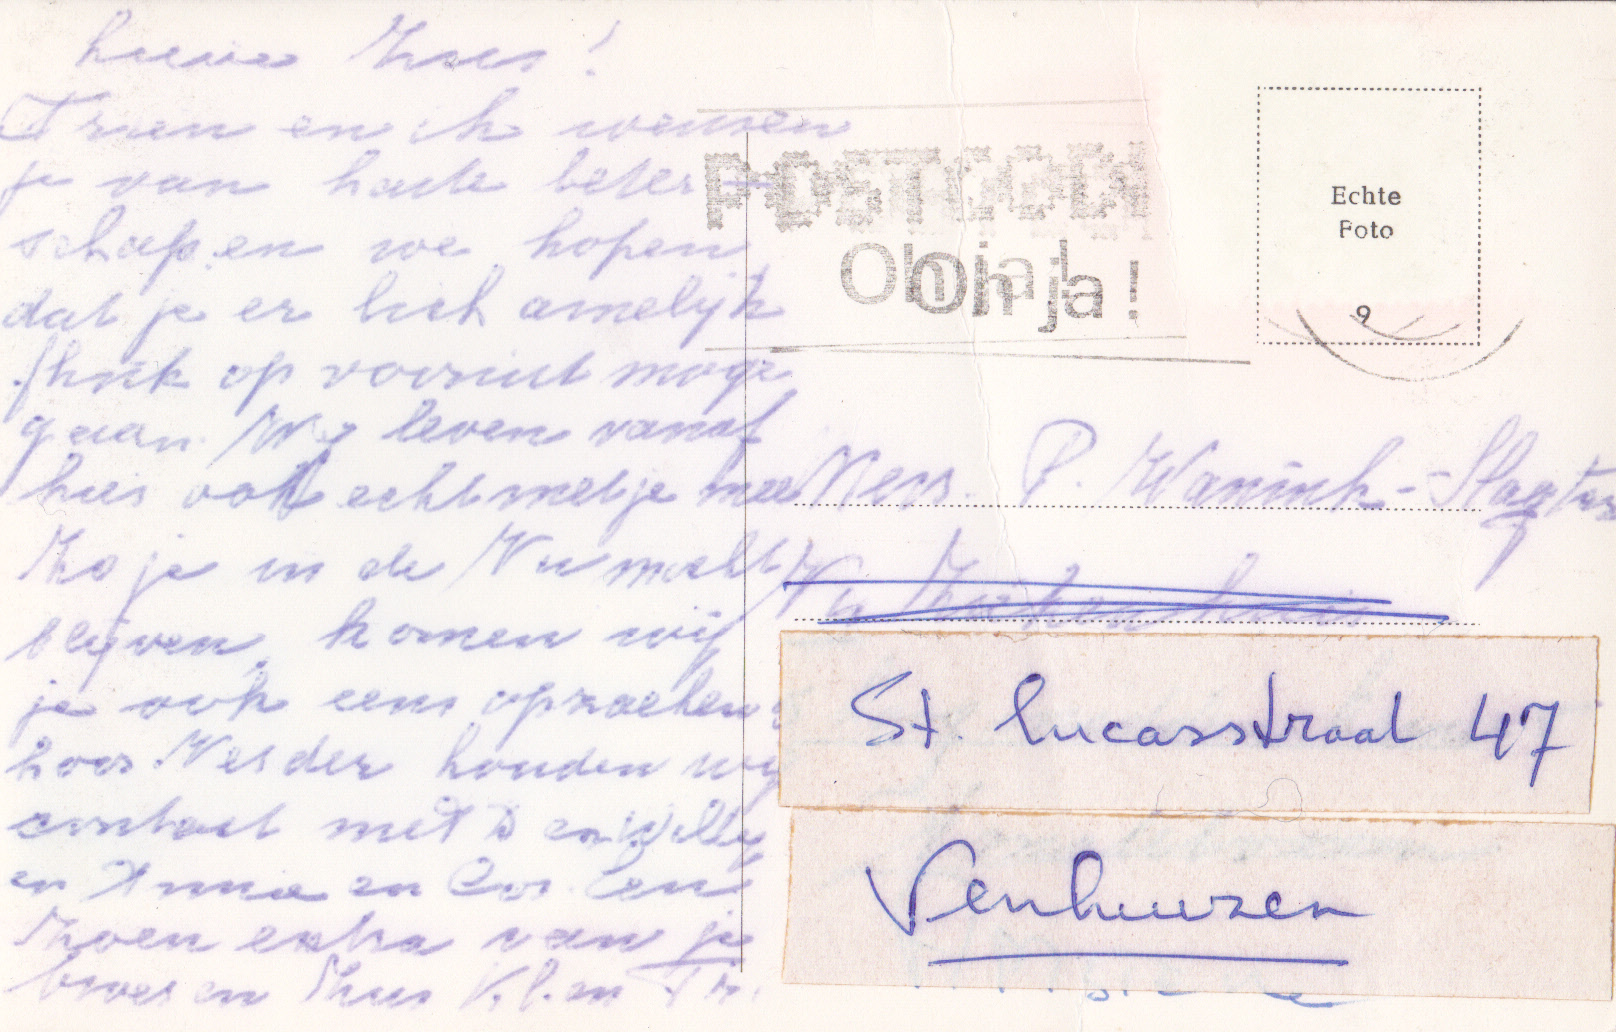 Lieve Zus!
Trien en ik wensen
je van harte beter=
schap. en we hopen
dat je er lichamelijk
flink op vooruit moge
gaan. Wij leven vanaf
hier ook echt met je mee
Zo je in de Nu mocht
blijven, komen wij
je ook eens opzoeken
hoor. Verder houden wij
contact met D en Willy
en Annie en Cor. Een
Zoen extra van je
broer en Thuis Kl. en Tr.
POSTCODE
Oh ja!
Oh ja!
Echte
Foto
9
Mevr. P. Wanink-Slagter
St. Lucasstraat 47
Venhuizen